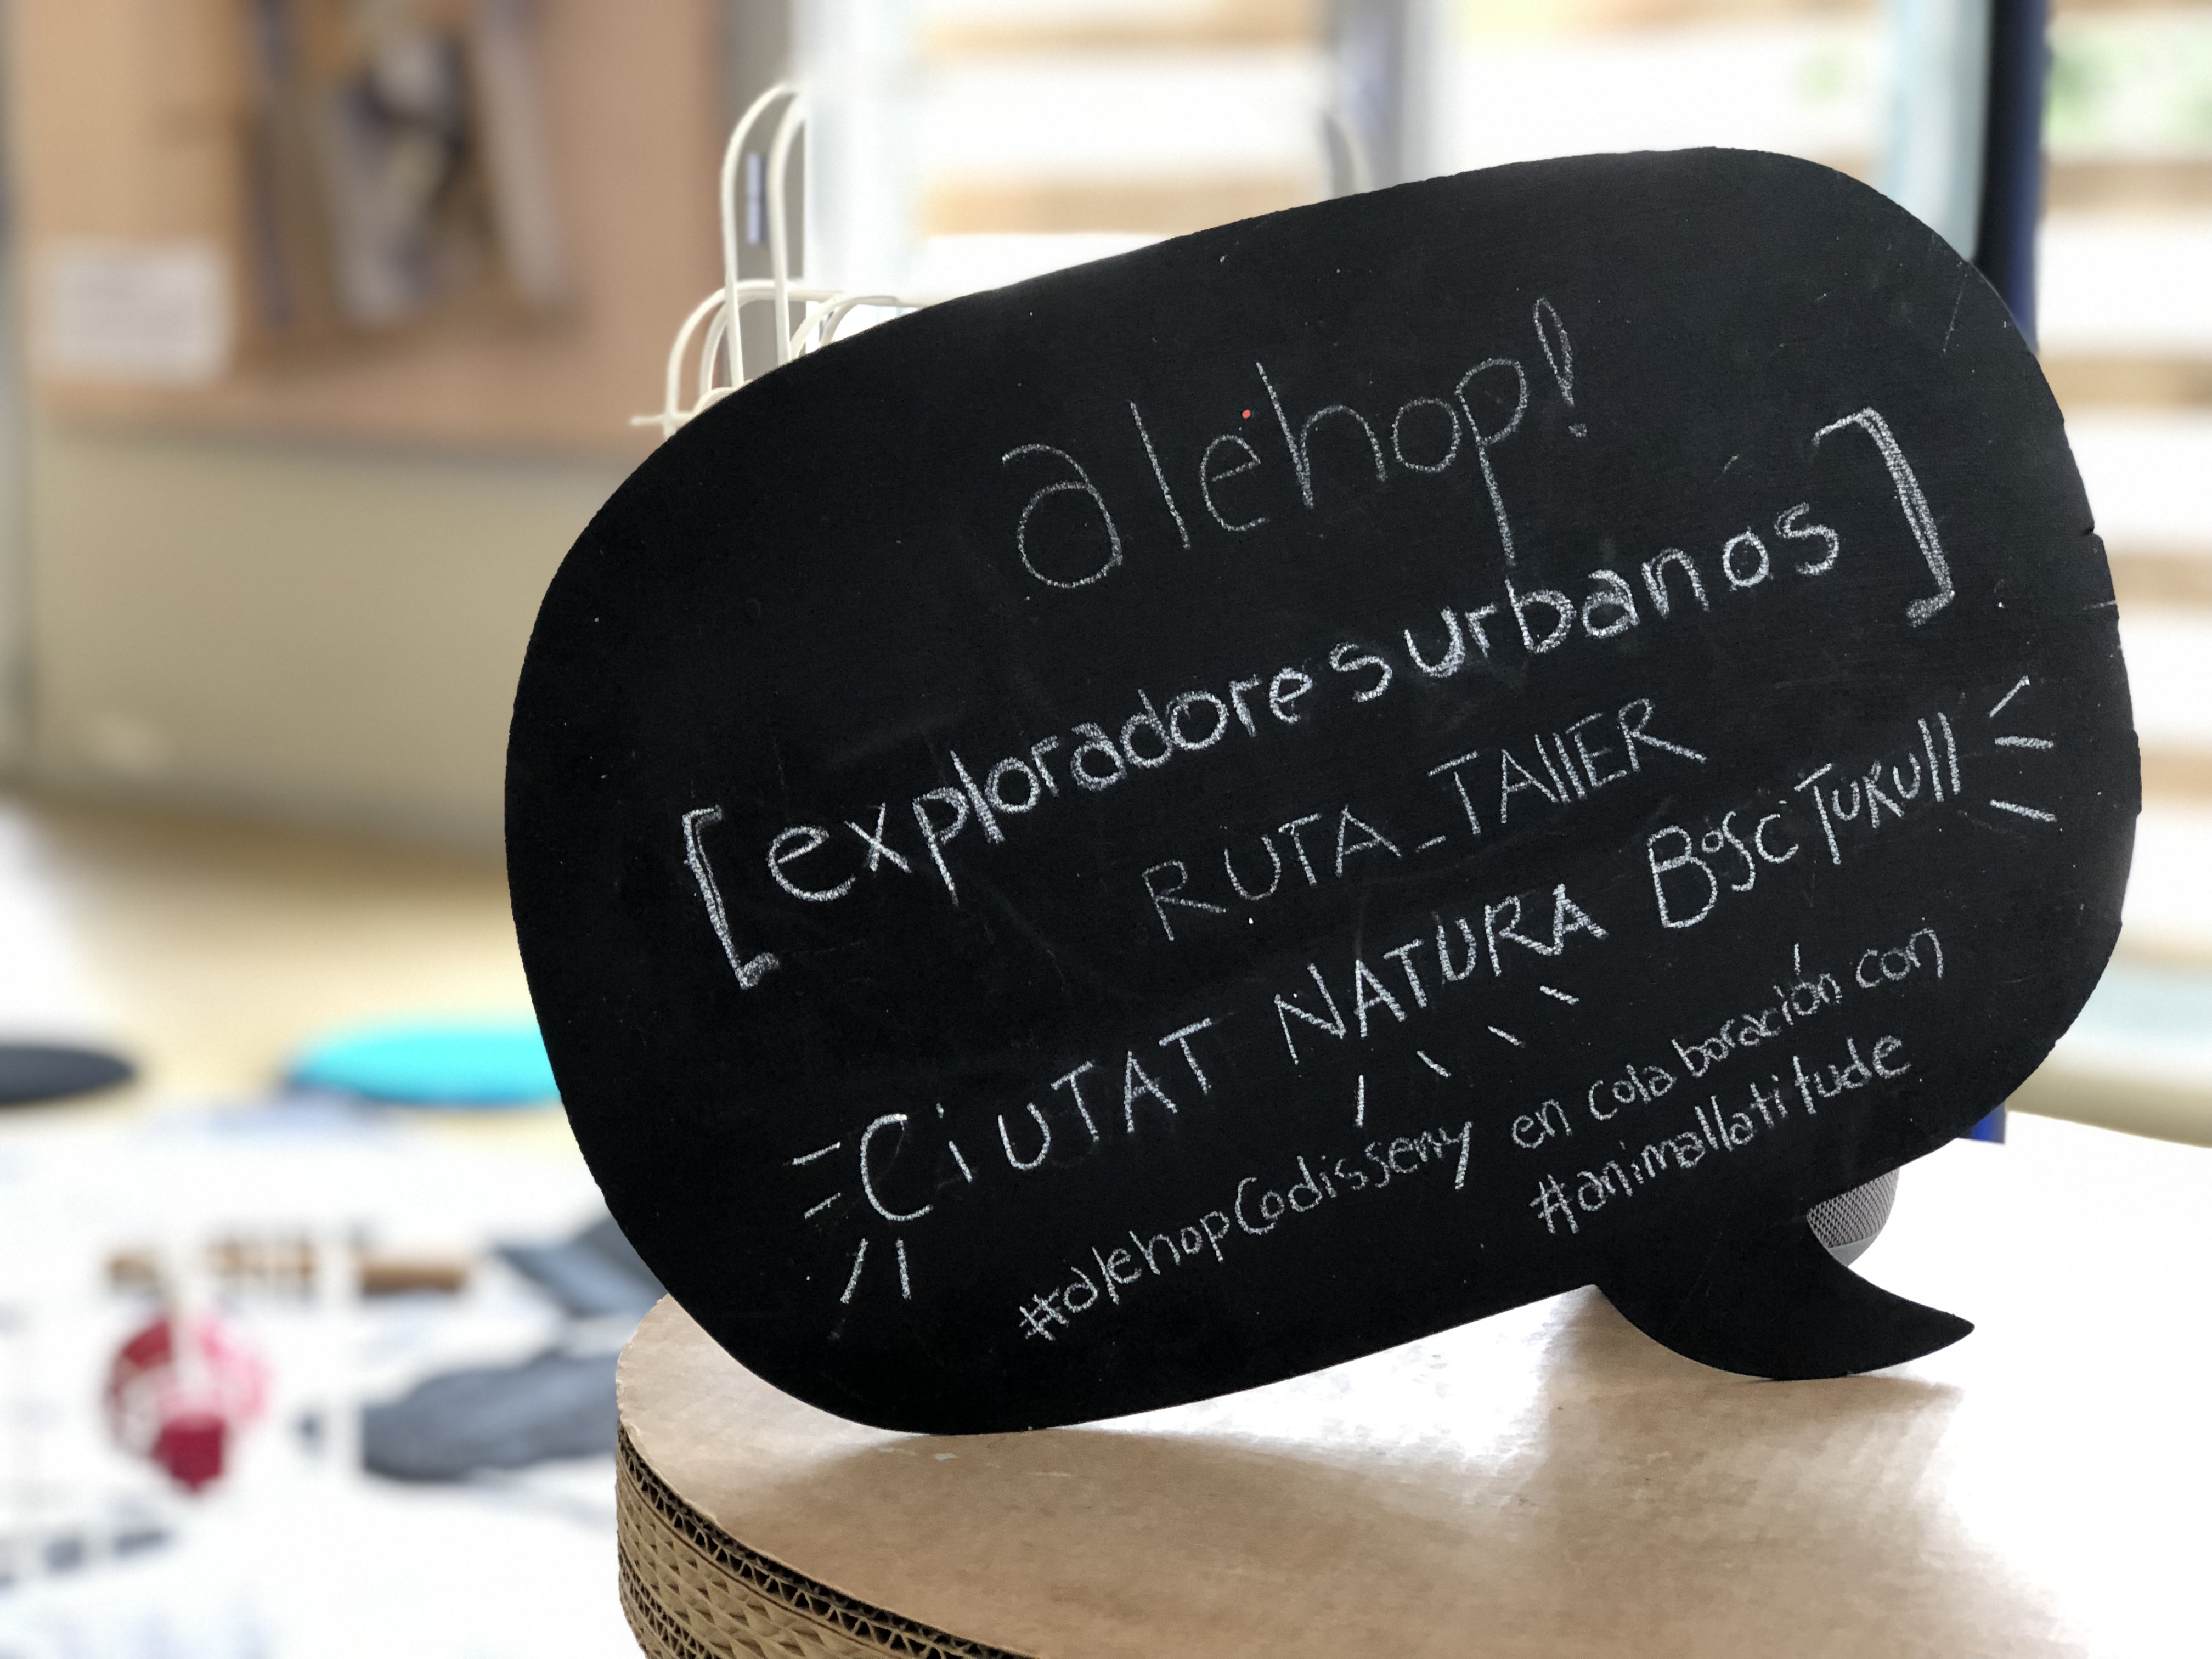 alehop!
[exploradores urbanos]
RUTA_TAllER
CiUTAT NATURA BoSC TURUll
#alehopCodisseny en colaboración con
#animallatitude